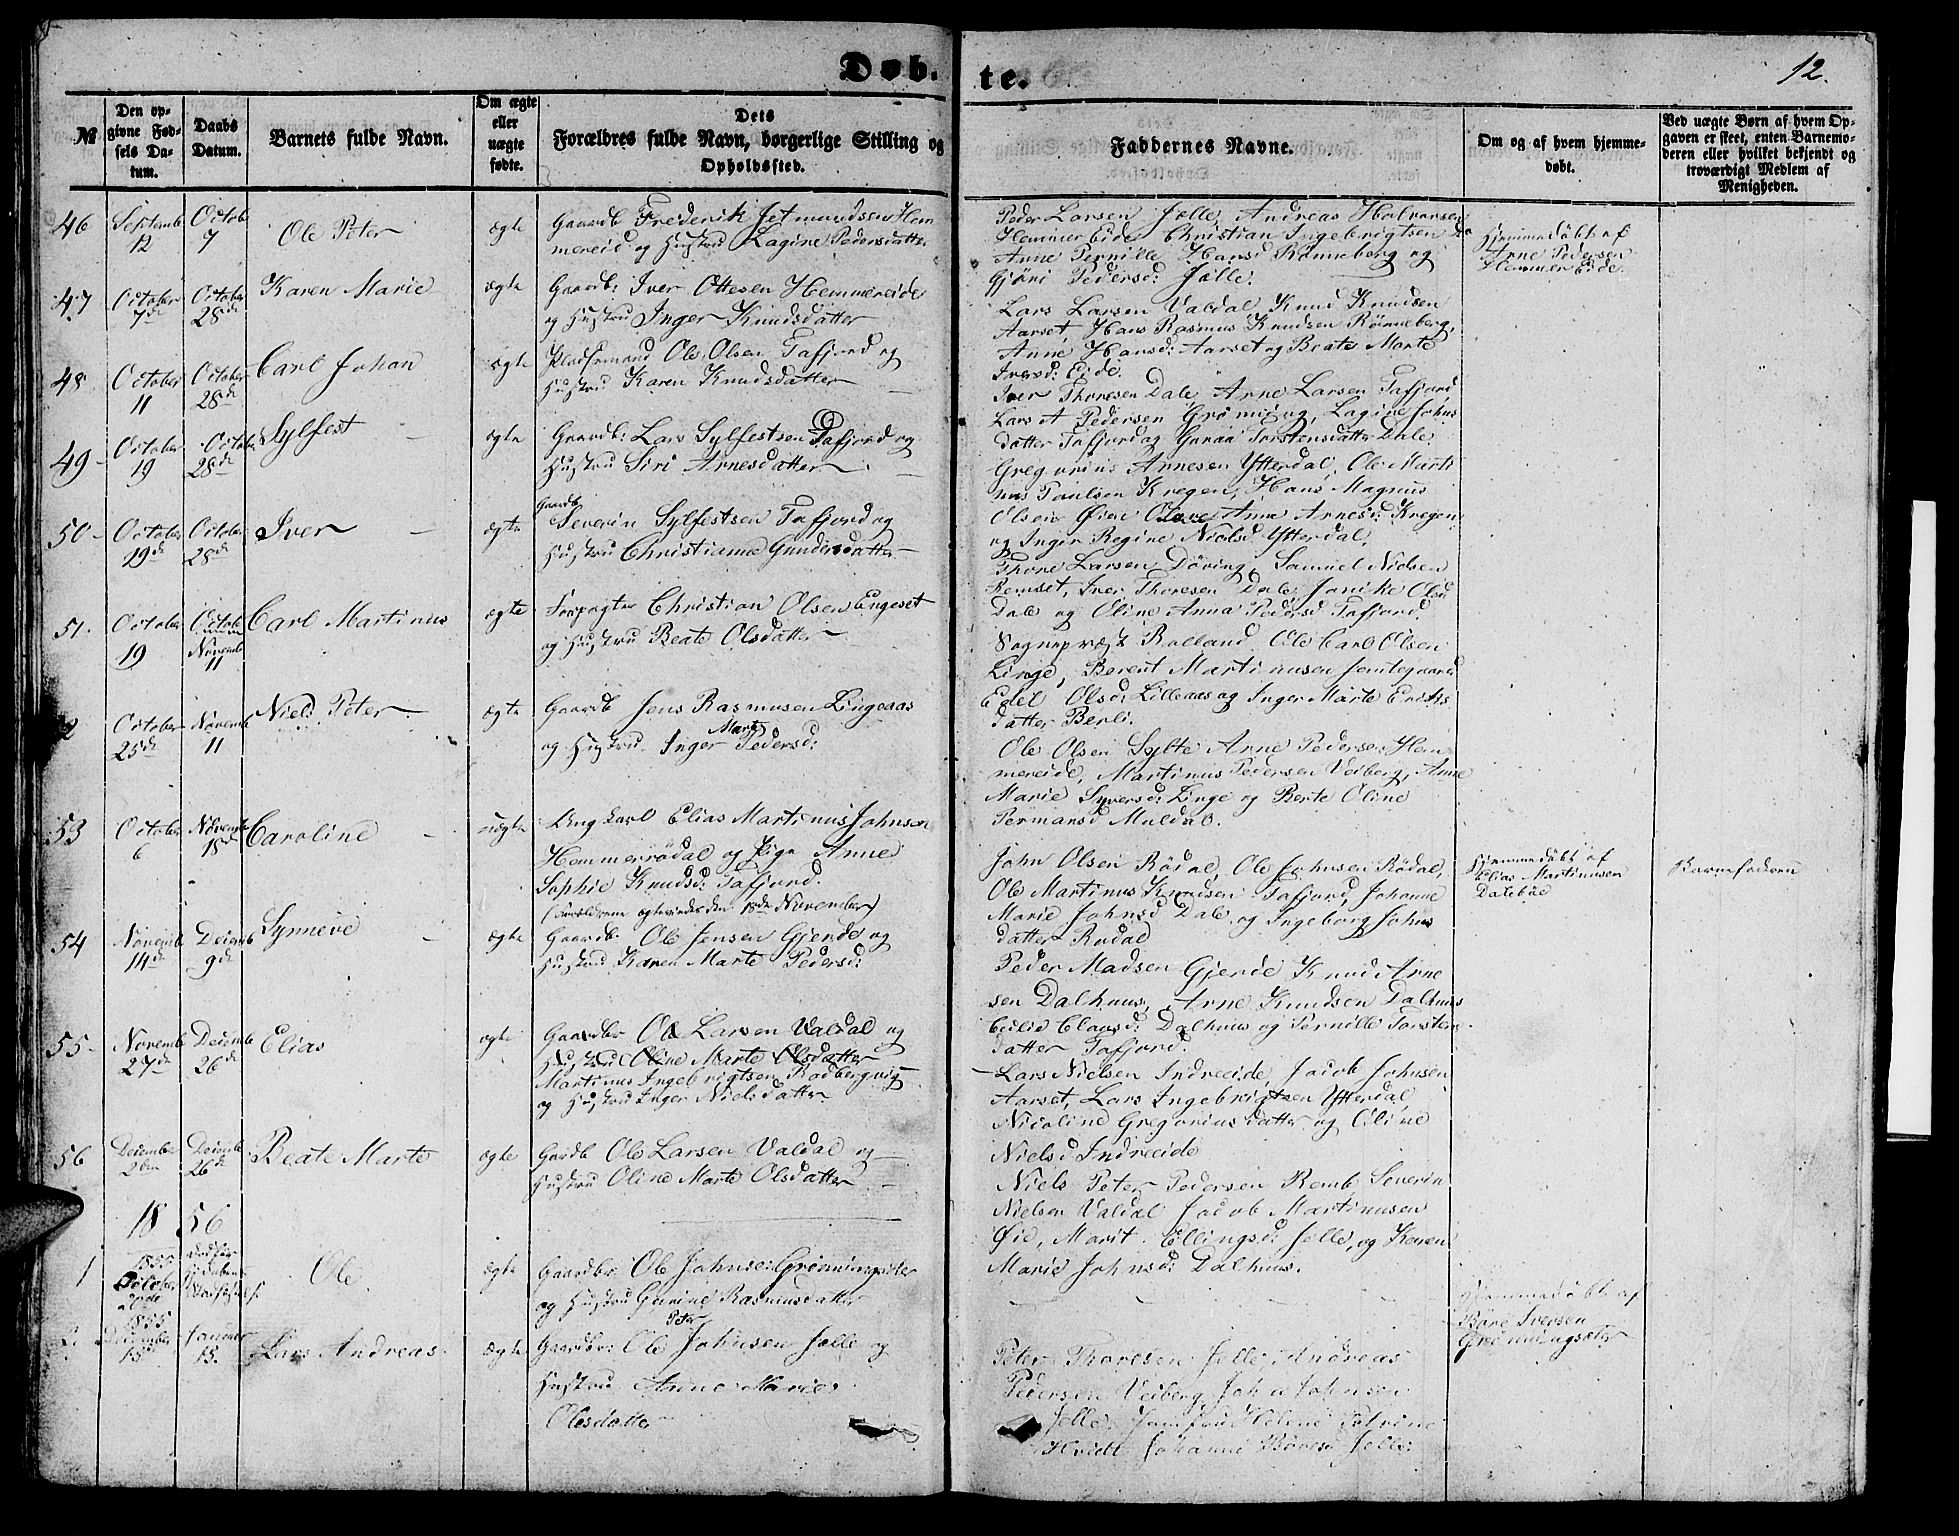 Døb-
te.
12.
№
Den op-
givne Fød-
sels Da-
tum.
Daabs
Datum.
Barnets fulde Navn.
Om ægte
eller
uægte
fødte.
Dets
Forældres fulde Navn, borgerlige Stilling og
Opholdssted.
Faddernes Navne.
Om og af hvem hjemme-
døbt.
Ved uægte Børn af hvem Op-
gaven er skeet, enten Barnemo-
deren eller hvilket bekjendt og
troværdigt Medlem af
Menigheden.
46
Septemb
12
Octob
7
Ole Peter
ægte
Gaardb Frederik Jetmundsen Hem
mereid og Hustru Lagine Pedersdatter
Peder Larsen Jølle, Andreas Halvorsen
Hemmer Eide Christian Ingebrigtsen do
Anne Pernille Hansd Rønneberg og
Gjøri Pedersd: Jølle.
Hjemmedøbt af
Arne Pedersen
Hemmer Eide
47
October
7de
October
28de
Karen Marie
ægte
Gaardb: Iver Ottesen Hemmereide
og Hustru Inger Knudsdatter
Lars Larsen Valdal Knud Knudsen
Aarset, Hans Rasmus Knudsen Rønneberg,
Anne Hansd: Aarset og Beate Marte
Iversd: Eide.
48
October
11
October
28de
Carl Johan
ægte
Pladsemand Ole Olsen Tafjord og
Hustru Karen Knudsdatter
Iver Thoresen Dale, Arne Larsen Tafjord,
Lars A Pedersen Lagine Johns
datter Tafjord og Torstensdatter Dale
49
October
19
October
28de
Sylfest
ægte
Gaardb: Lars Sylfestsen Tafjord og
Hustru Siri Arnesdatter
Gregorius Arnesen Ytterdal, Ole Marti
nus Paulsen Kregen, Hans Magnus
Olsen Øien Anna Arnesd: Kregen
og Inger Regine Nielsd Ytterdal.
50
October
19de
October
28de
Iver
ægte
Gaardb:
Severin Sylfestsen Tafjord og
Hustru Christianna Gundersdatter
Thore Larsen Døving, Samuel Nielsen
Remset, Iver Thoresen Dale, Janike Olsd
Dale og Oline Anna Pedersd Tafjord.
51.
October
19
Novemb
11
Carl Martinus
ægte
Forpagter Christian Olsen Engeset
og Hustru Beate Olsdatter
Sognepræst Rolland Ole Carl Olsen
Linge, Berent Martinusen Jemtegaard
Edel Olsd: Lilleaas og Inger Marte Eriks
datter Berli.
October
25de
Novemb
11
Niels Peter
ægte
Gaardb Jens Rasmusen Lingeaas
Marte
og Hustru Inger Pedersd:
Ole Olsen Sylte Arne Pedersen Hem
mereide, Martinus Pedersen Veiberg, Anne
Marie Syversd: Linge og Berte Oline
Jermansd Muldal.
53
October
6
Novemb
18de
Caroline
uægte
Ungkarl Elias Martinus Johnsen
Hemmerrødal og Pige Anne
Sophie Knudsd: Tafjord.
(Forældrene ægteviedes den 18de November)
John Olsen Rødal, Ole Johnsen Rødal,
Ole Martinus Knudsen Tafjord, Johanne
Marie Johnsd Dale og Ingeborg Johns
datter Rødal
Hjemmedøbt af
Elias Martinusen
Dalebue
Barnefaderen
54
Novemb
14de
Decemb
9de
Synneve
ægte
Gaardb: Ole Jensen Gjerde og
Hustru Karen Marte Pedersd:
Peder Madsen Gjerde Knud Arne
sen Dalhuus, Arne Knudsen Dalhuus
Cecilie Clausd: Dalhuus og Pernille Torstens
datter Tafjord.
55
Novemb
27de
Decemb
26de
Elias
ægte
Gaardbr Ole Larsen Valdal og
Hustru Oline Marte Olsdatter
Martinus Ingebrigtsen Rødbergvig
og Hustru Inger Nielsdatter
Lars Nielsen Indreeide, Jacob Johnsen
Aarset, Lars Ingebrigtsen Ytterdal
Nicoline Gregoriusdatter og Oline
Nielsd Indreeide
56
December
2den
Decemb
26de
Beate Marte
ægte
Gardb Ole Larsen Valdal og
Hustru Oline Marte Olsdatter
Niels Peter Pedersen Remb Severin
Nielsen Valdal Jacob Martinusen
Øie, Marit Ellingsd: Jølle, og Karen
Marie Johnsd: Dalhuus.
18 56
1
1855
October
Ole
ægte
Gaardbr Ole Johnsen Grønningsæter
og Hustru Gurine Rasmusdatter
Hjemmedøbt af
Børe Iversen
Grønningsæter
2.
1855
December
15de
Januar
15.
Lars Andreas
ægte
Peter
Gaardbr: Ole Johnsen Jølle og
Hustru Anne Marie
Olesdatter
Peter Thoresen Jølle, Andreas
Pedersen Veiberg John Johnsen
Jølle, Jomfru Helene Petrine
Hvidt Johanne Børesd Jølle.